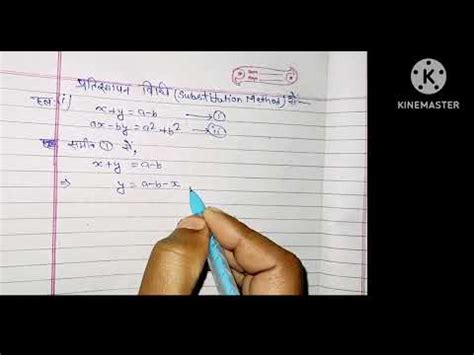 प्रतिस्थापन विधि (Substitution Method) से:-
हल: (i)
x+y = a-b → (i)
ax-by = a²+b² → (ii)
समी० (1) से,
x+y = a-b
⇒ y = a-b-x
KINEMASTER